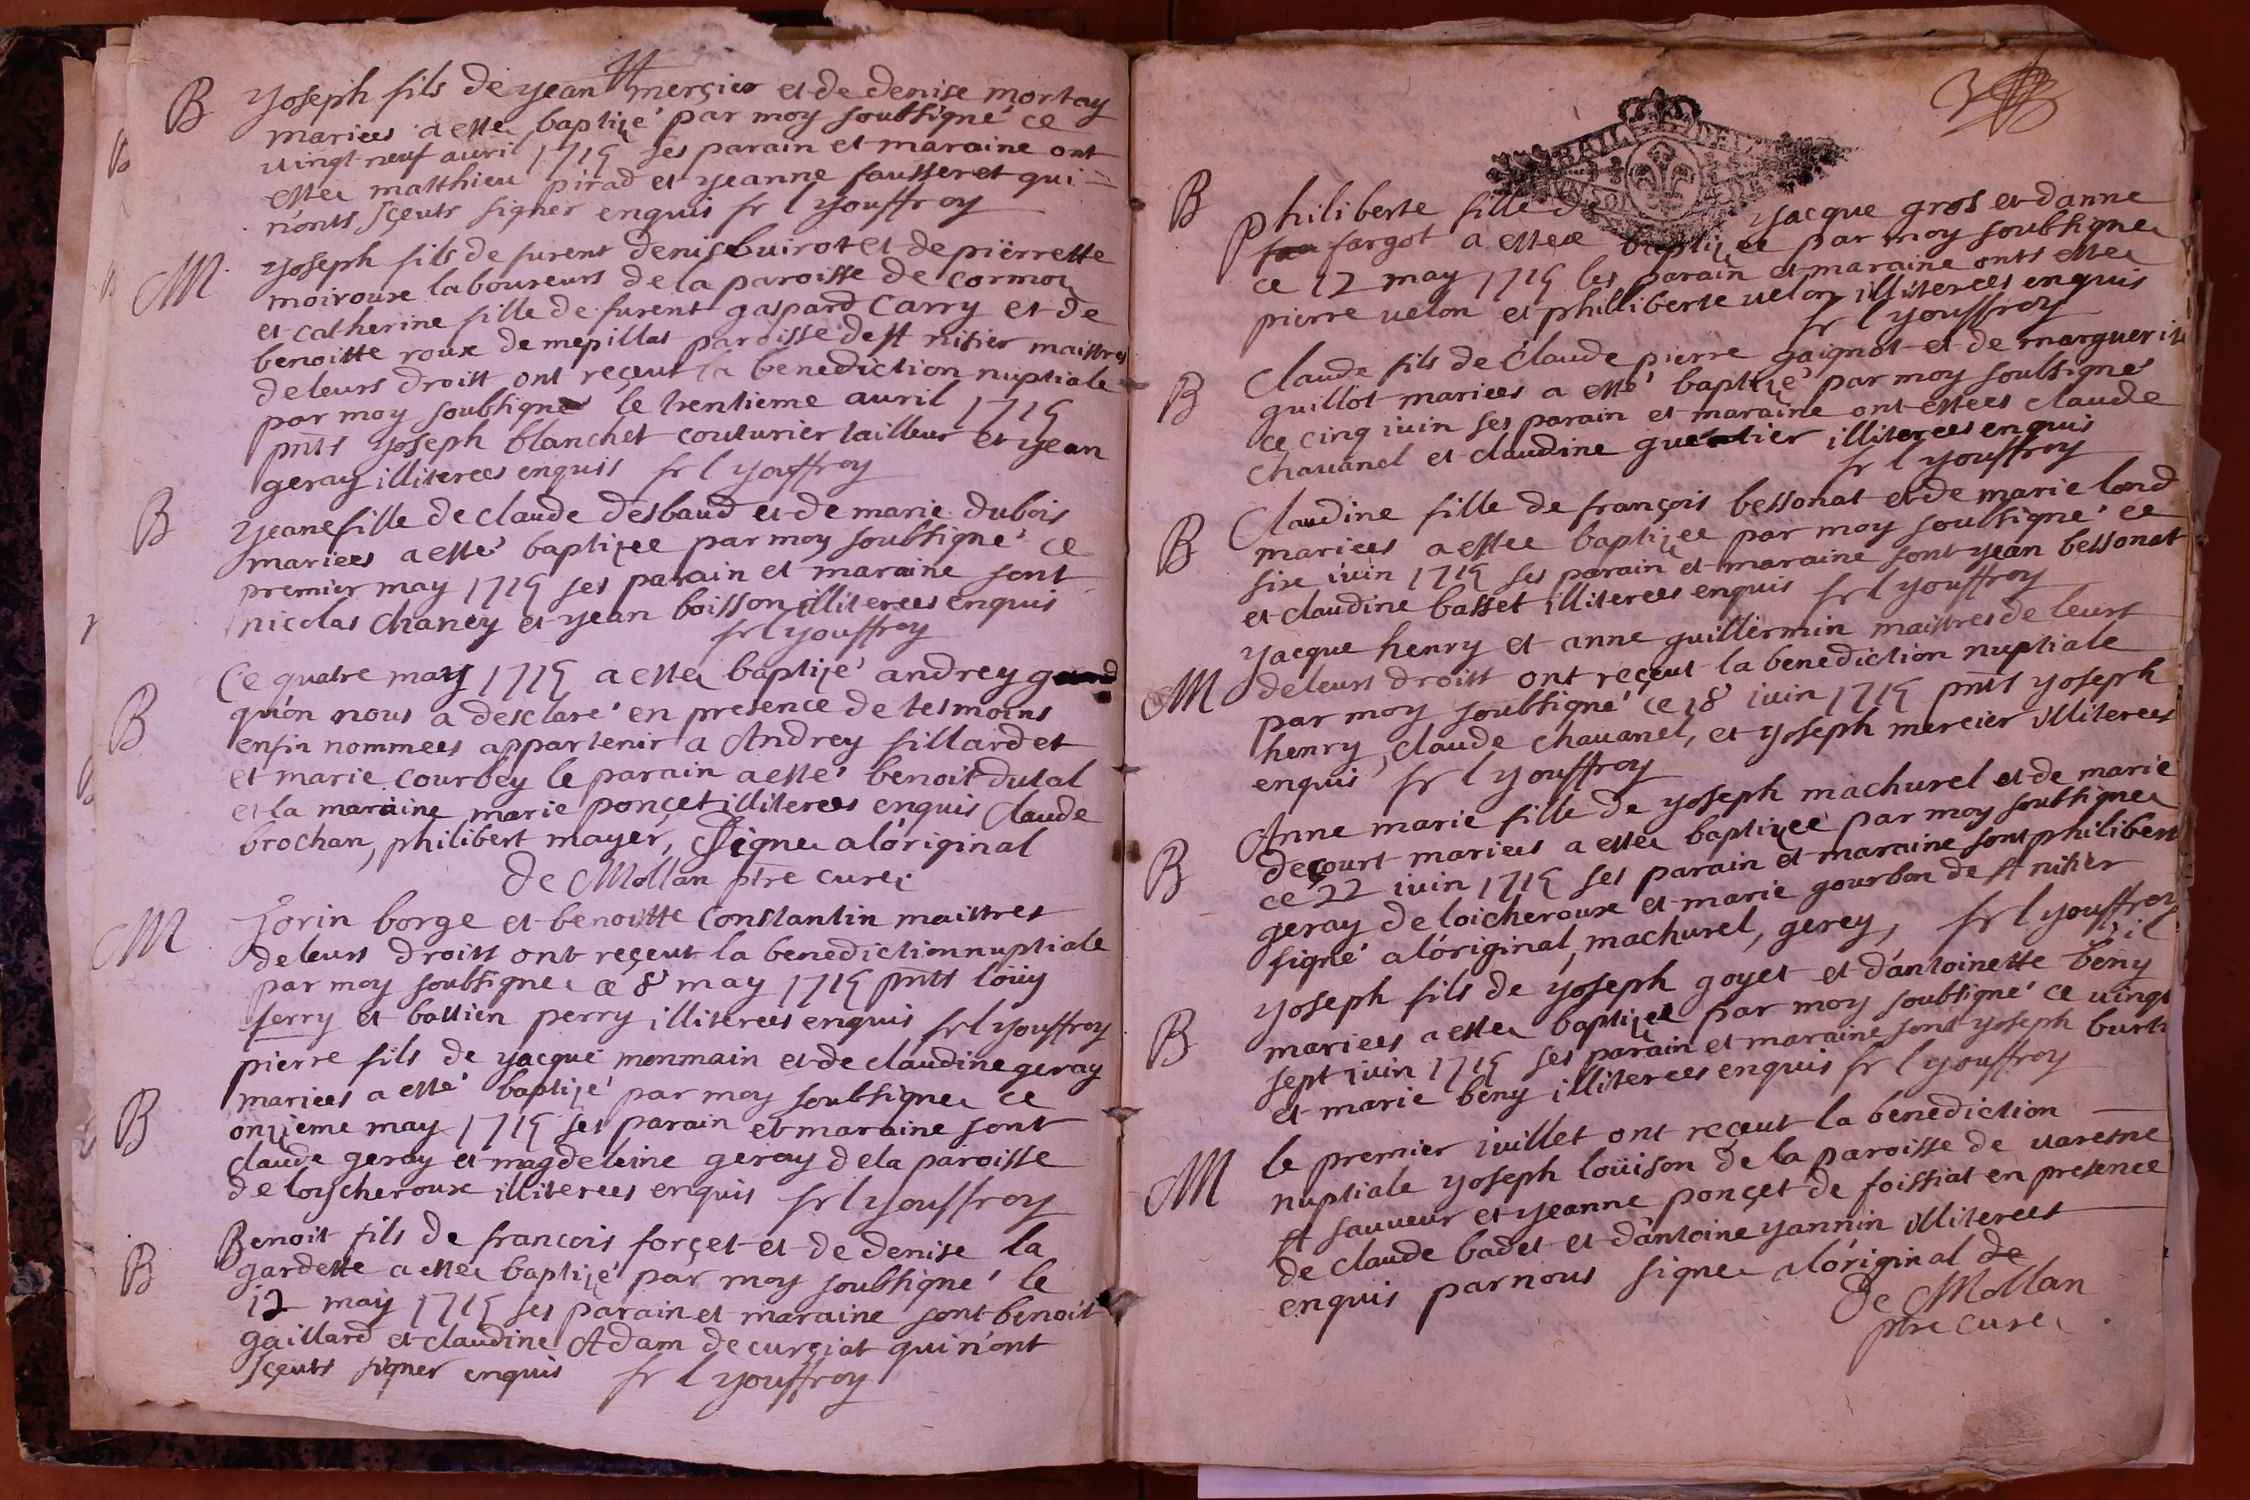 B
yoseph fils de yean merçier et de denise mortay
mariees a estee baptizé par moy soubsigné ce
vingt neuf auril 1715 ses parain et maraine ont
estee matthieu pirad et yeanne fausseret qui
n'onts sçeuts signer enquis fr l youffroy
M
yoseph fils de furent denis buirot et de piërrette
moiroux laboureurs de la paroisse de cormou
et catherine fille de furent gaspard Carry et de
benoitte roux de mepillat paroisse de st nisier maistres
de leurs droist ont reçeut la benediction nuptiale
par moy soubsigné le trentieme auril 1715
pnts yoseph blanchet couturier tailleur et yean
geray illiterees enquis fr l youffroy
B
yeane fille de claude desbaud et de marie dubois
mariees a esté baptizee par moy soubsigné ce
premier may 1715 ses parain et maraine sont
nicolas chaney et yean boisson illiterees enquis
fr l youffroy
B
Ce quatre may 1715 a estee baptizé andrey
qu'on nous a desclaré en presence de tesmoins
enfin nommees appartenir a Andrey fillard et
et marie courbey le parain a esté benoit dutal
et la maraine marie ponçet illiterees enquis Claude
brochan, philibert mayer, signee a l'original
de Mollan ptre curé
M
Jorin borge et benoitte Constantin maistres
de leurs droits ont reçeut la benediction nuptiale
par moy soubsignee ce 8 may 1715 pnts loüy
ferry et bastien perry illiterees enquis fr l youffroy
B
pierre fils de yacque monmain et de claudine geray
mariees a esté baptizé par moy soubsignee ce
onzieme may 1715 ses parain et maraine sont
claude geray et magdeleine geray de la paroisse
de loyscheroux illiterees enquis fr l youffroy
B
Benoit fils de francois forçet et de denise la
gardette a estee baptizé par moy soubsigné le
12 may 1715 ses parain et maraine sont benoit
gaillard et claudine Adam de curçiat qui n'ont
sçeuts signer enquis fr l youffroy
B
philiberte fille de yacque gros et d'anne
fargot a estee baptizee par moy soubsignee
ce 12 may 1715 les parain et maraine onts estee
pierre uelon et philliberte uelon illiterees enquis
fr l youffroy
B
Claude fils de claude pierre gaignot et de marguerite
guillot mariees a esté baptizé par moy soubsigné
ce cinq iuin ses parain et maraine ont estees claude
chauanel et claudine illiterees enquis
fr l youffroy
B
Claudine fille de françois bessonat et de marie lond
mariees a estee baptizee par moy soubsigné ce
six iuin 1715 ses parain et maraine sont yean bessonat
et claudine basset illiterees enquis fr l youffroy
M
yacque henry et anne guillermin maistres de leurs
de leurs droist ont reçeut la benediction nuptiale
par moy soubsigné ce 18 iuin 1715 pnts yoseph
henry, claude chauanel, et yoseph mercier illiterees
enquis fr l youffroy
B
Anne marie fille de yoseph machurel et de marie
decourt mariees a estee baptizee par moy soubsignee
ce 22 iuin 1715 ses parain et maraine sont philibert
geray de loicheroux et marie gourbon de st nisier
signé a l'original, machurel, gerey, fr l youffroy
B
yoseph fils de yoseph goyet et d'antoinette beny
mariees a estee baptizee par moy soubsigné ce uingt
sept iuin 1715 ses parain et maraine sont yoseph burti
et marie beny illiterees enquis fr l youffroy
M
le premier iuillet ont receut la benediction
nuptiale yoseph loüison de la paroisse de uaresne
st sauueur et yeanne ponçet de foissiat en presence
de claude badet et d'antoine yannin illiterees
enquis par nous signee a l'original de
de Mollan
ptre curé